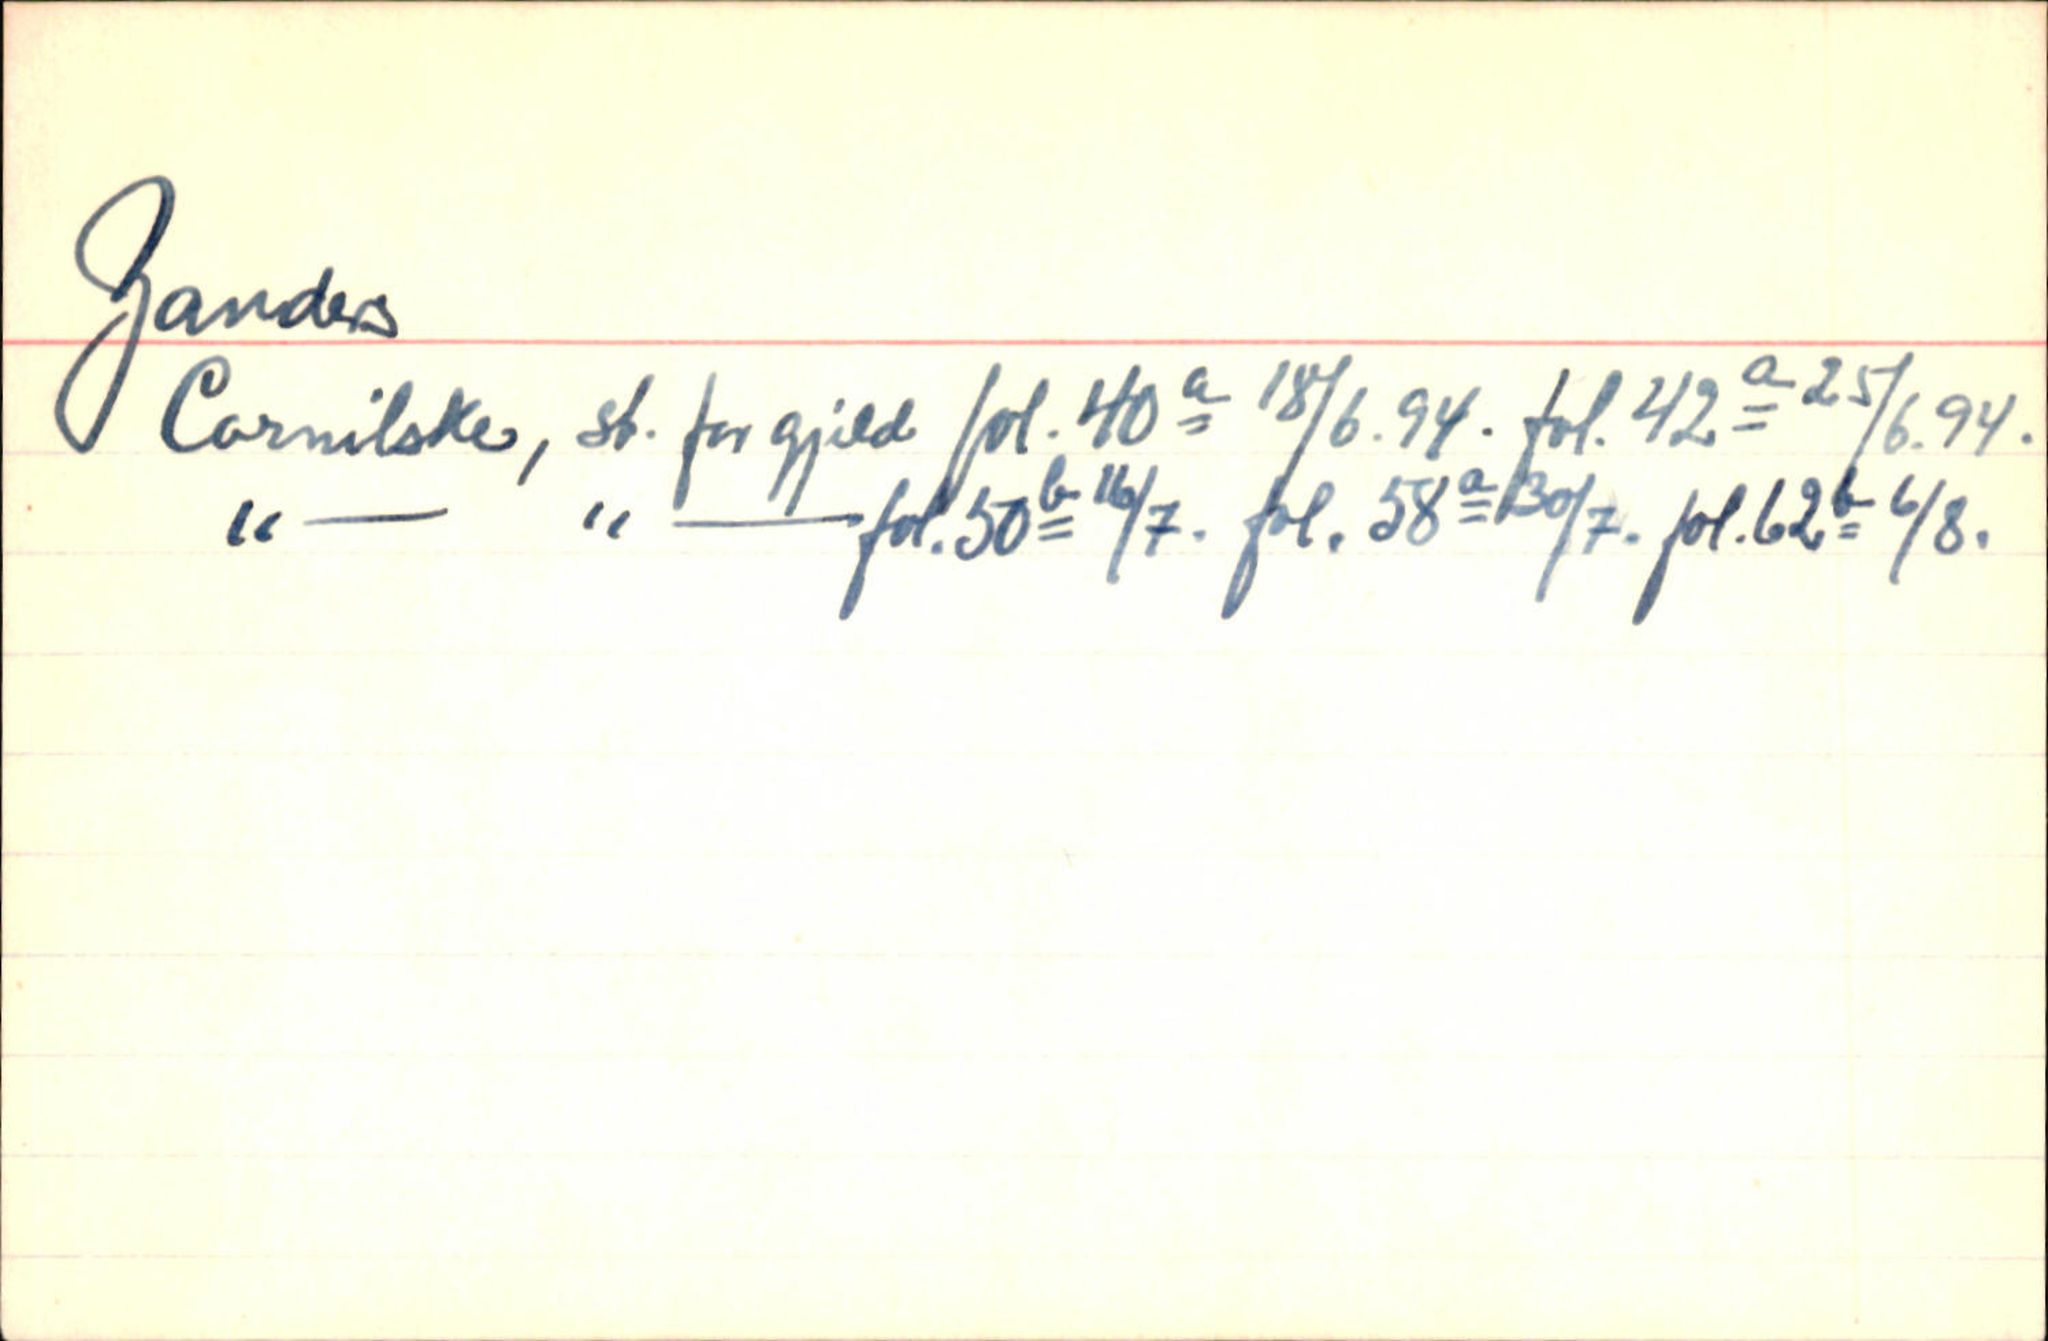 Zanders
Cornilske, st. for gjeld fol. 40a 18/6.94. fol. 42a 25/6.94.
"— " — fol. 50b 16/7. fol. 58a 30/7. fol. 62b 6/8.